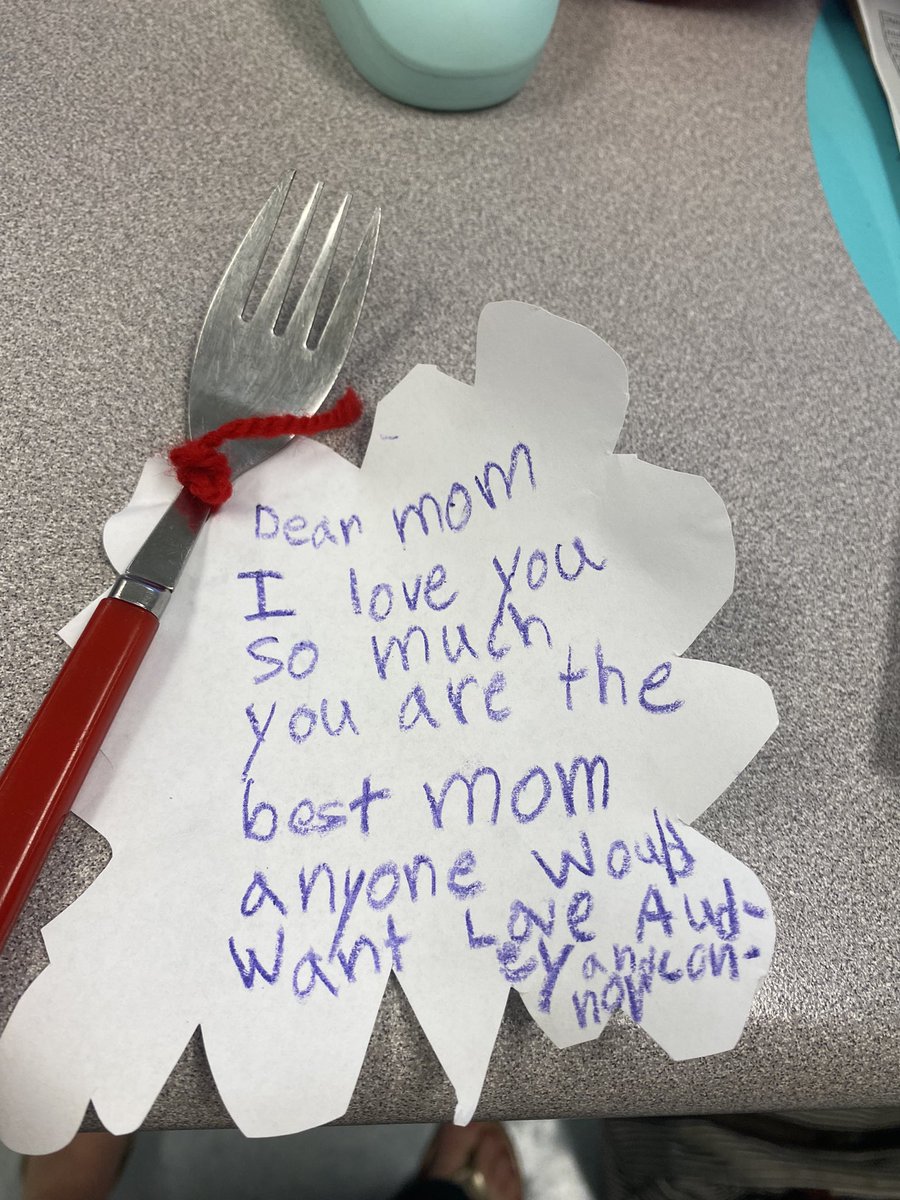 Dear mom
I love you
so much
you are the
best mom
anyone would
want Love Aud-
ey and con-
nor